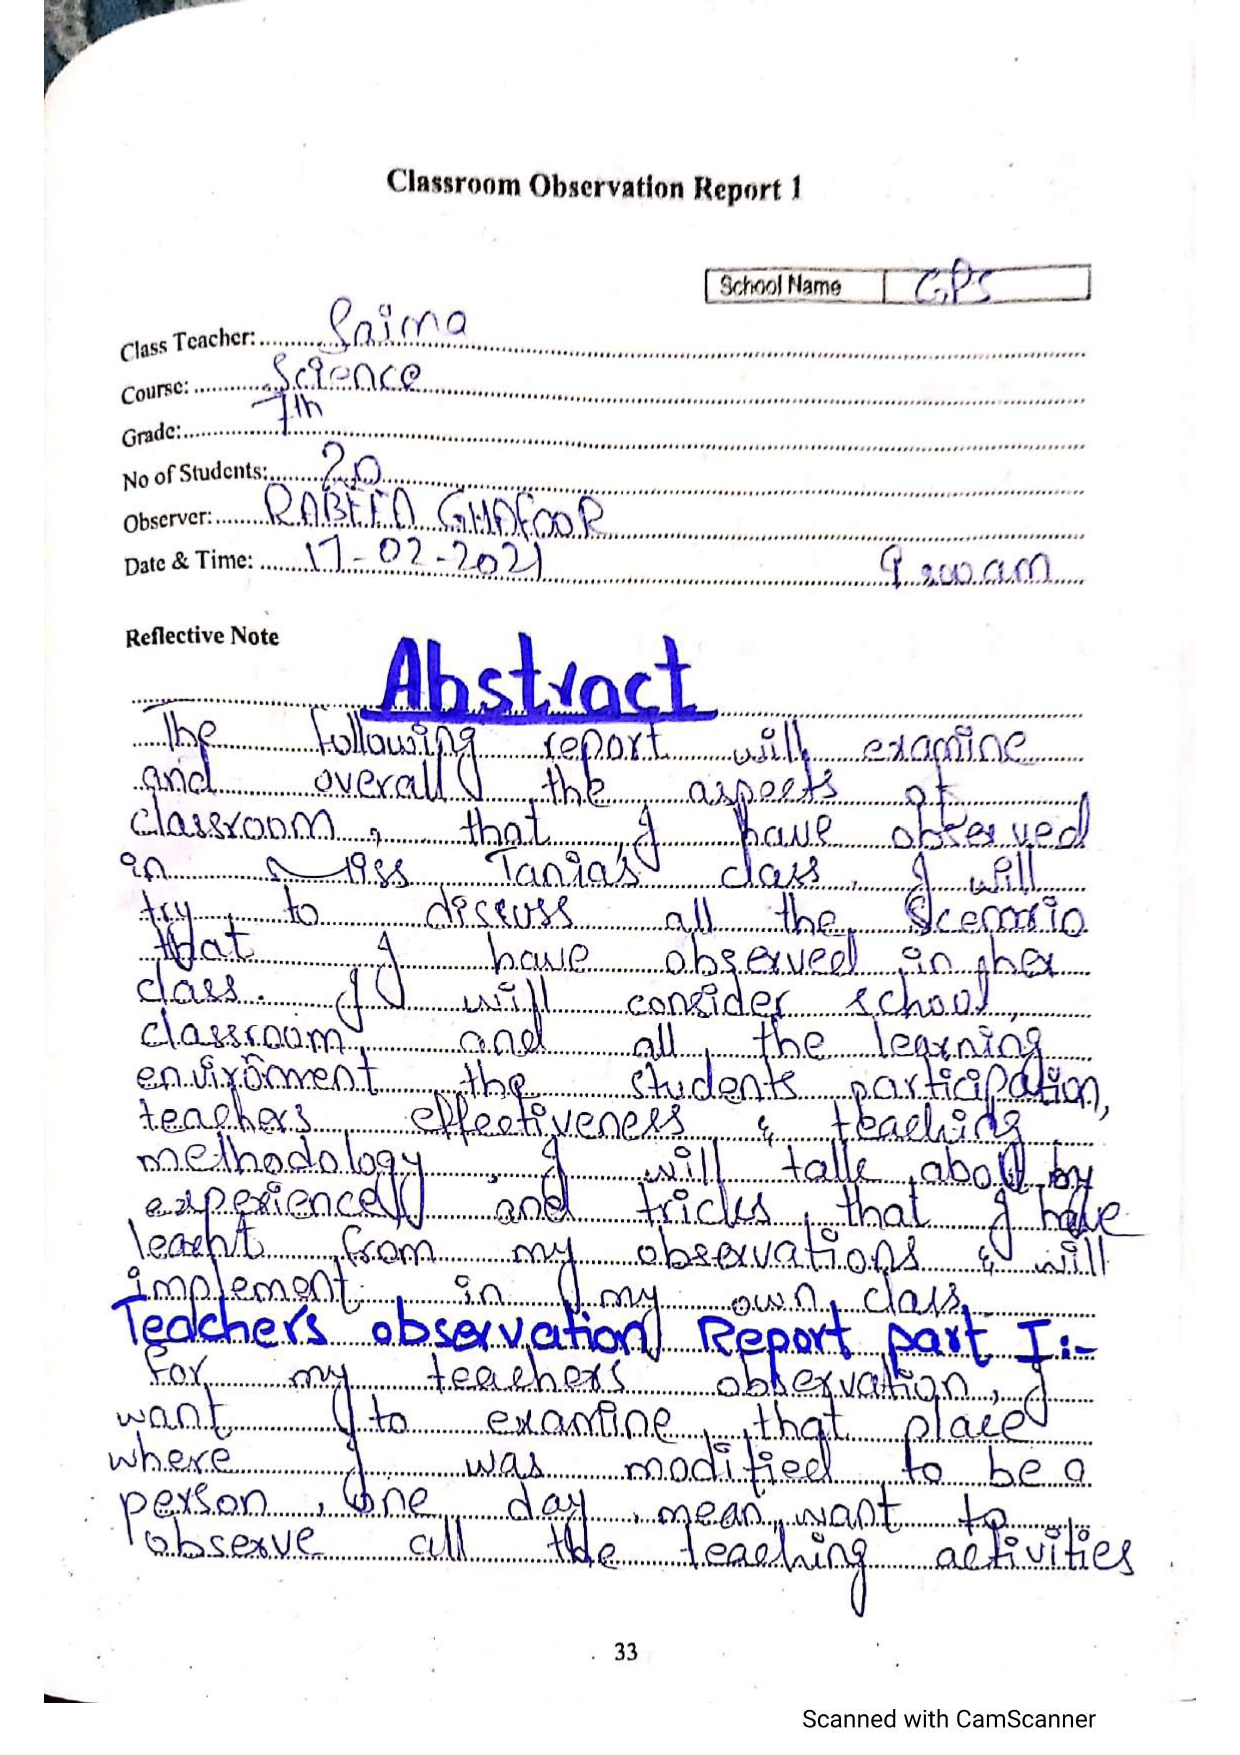 Classroom Observation Report 1
School Name GPS
Class Teacher: Saima
Course: Science
Grade: 7th
No of Students: 20
Observer: RABEEA GHAFOOR
Date & Time: 17-02-2021 9:00 am
Reflective Note
Abstract
The following report will examine
and overall the aspects of
classroom, that I have observed
in Miss Tania's class. I will
try to discuss all the Scenario
that I have observed in her
class. I will consider school,
classroom and all the learning
environment the students participation,
teachers effectiveness & teaching
methodology, I will talk about by
experienced and tricks, that I have
learnt from my observations & will
implement in my own class.
Teacher's observation Report part I:-
For my teachers observation, I
want to examine that place
where I was modified to be a
person, One day, mean want to
observe all the teaching activities
33
Scanned with CamScanner